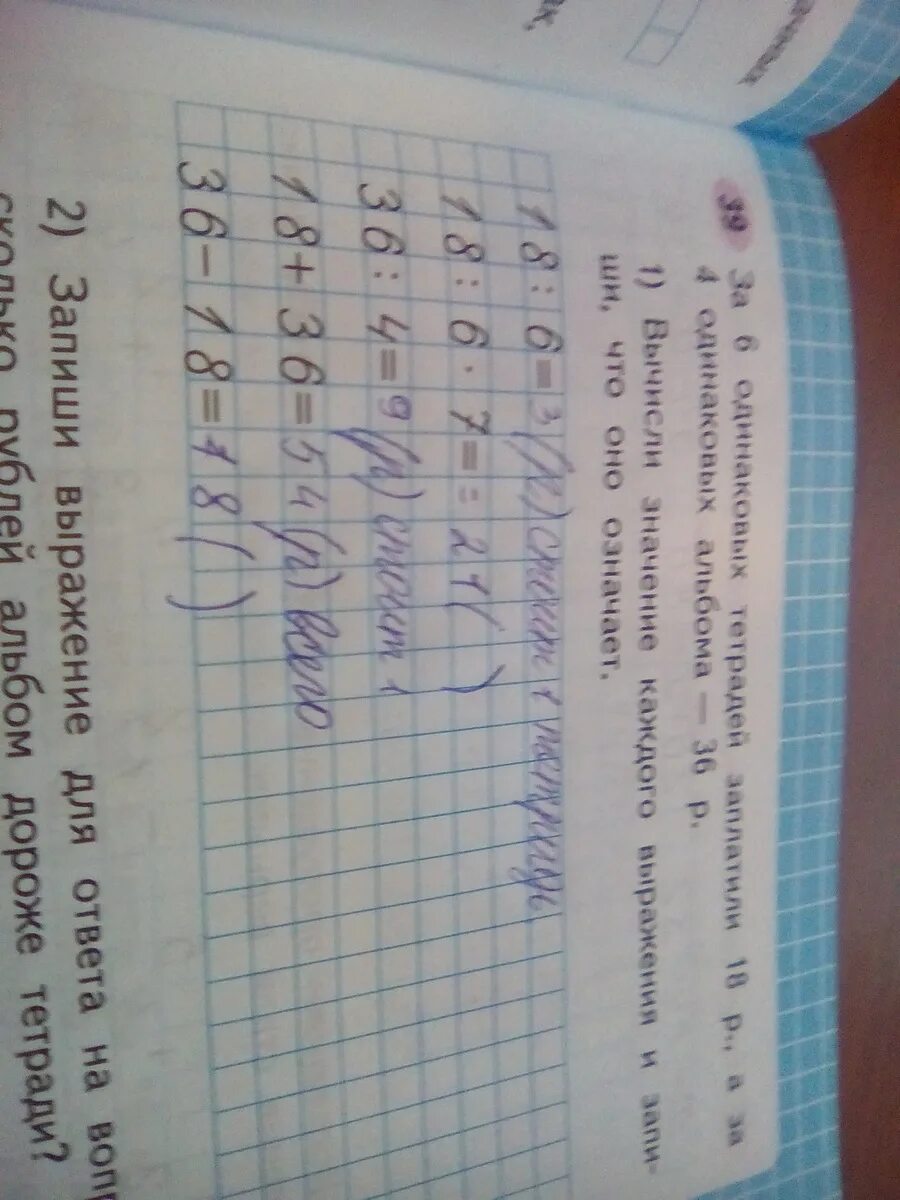 39 За 6 одинаковых тетрадей заплатили 18 р., а за
4 одинаковых альбома — 36 р.
1) Вычисли значение каждого выражения и запи-
ши, что оно означает.
18 : 6 = 3 (р) стоит 1 тетрадь
18 : 6 · 7 = 21 ( )
36 : 4 = 9 (р) стоит 1
18 + 36 = 54 (р) всего
36 - 18 = 18 ( )
2) Запиши выражение для ответа на вопр
сколько рублей альбом дороже тетради?